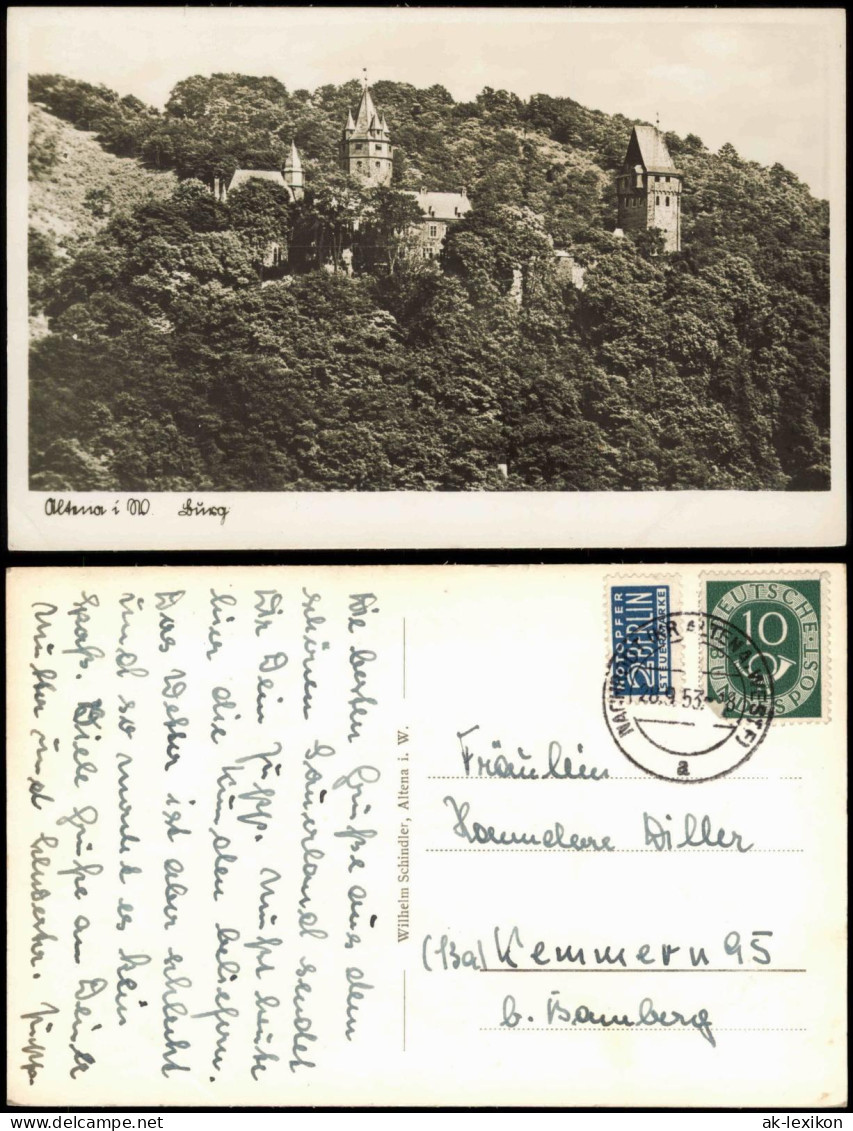 Altena i W. Burg
Die besten Grüße aus dem
schönen Sauerland sendet
Dir Dein Jupp. Muß heute
hier die Kunden beliefern.
Das Wetter ist aber schlecht
und so macht es kein
Spaß. Viele Grüße an Deine
Mutter und Schwester. Jupp.
Wilhelm Schindler, Altena i. W.
NOTOPFER
2 BERLIN
STEUERMARKE
DEUTSCHE
10
POST
ALTENA (WESTF)
28.9.53
a
Fräulein
Hannelore Diller
(13a) Kemmern 95
b. Bamberg
ak-lexikon